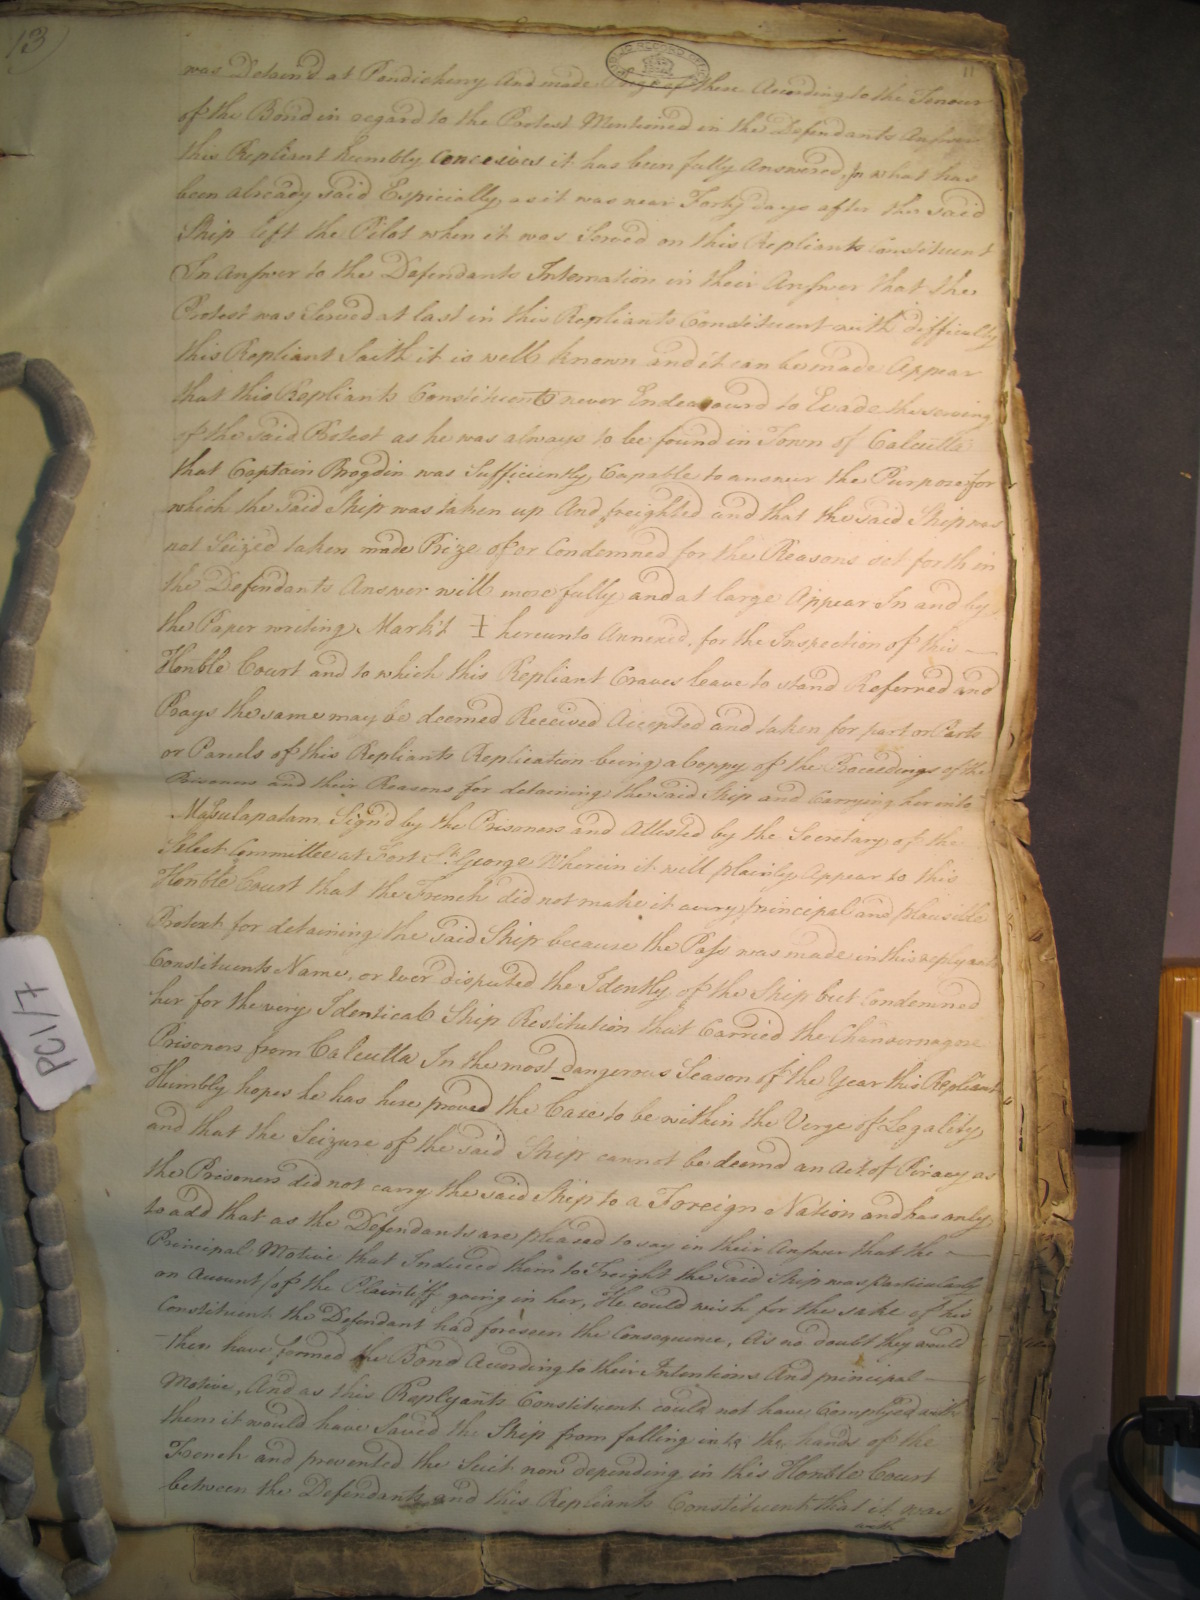 13)
11
was Detain'd at Pondicherry And made Prize of there According to the Tenour
of the Bond in regard to the Protest Mentioned in the Defendants Answer
this Repliant humbly Conceives it has been fully Answered In what has
been already said Especially as it was near Forty days after the said
Ship left the Pilot when it was Served on this Repliants Constituent
In Answer to the Defendants in their Answer that the
Protest was Served at last in this Repliants Constituent with difficulty
this Repliant Saith it is well known and it can be made Appear
that this Repliants Constituents never Endeavourd to Evade the serving
of the said Protest as he was always to be found in Town of Calcutta
that Captain Brogdin was Sufficiently Capable to answer the Purpose for
which the said Ship was taken up And freighted and that the said Ship was
not Seized taken made Prize of or Condemned for the Reasons set forth in
the Defendants Answer will more fully and at large Appear In and by
the Paper writing Mark't ‡ hereunto Annexed for the Inspection of this
Honble Court and to which this Repliant Craves leave to stand Referred and
Prays the same may be deemed Received Accepted and taken for part or Parts
or Parcels of this Repliants Replication being a Coppy of the Proceedings of the
Prisoners and their Reasons for detaining the said Ship and Carrying her into
Masulapatam Sign'd by the Prisoners and Attested by the Secretary of the
Select Committee at Fort St. George Wherein it will plainly Appear to this
Honble Court that the French did not make it a very principal and plausible
Pretext for detaining the said Ship because the Pass was made in this replyants
Constituents Name, or ever disputed the Identity of the Ship but Condemned
her for the very Identical Ship Restitution that Carried the Chansernagore
Prisoners from Calcutta In the most dangerous Season of the Year this Repliant
Humbly hopes he has here proved the Case to be within the Verge of Legality
and that the Seizure of the said Ship cannot be deemd an Act of Piracy as
the Prisoners did not carry the said Ship to a Foreign Nation and has only
to add that as the Defendants are pleased to say in their Answer that the
Principal Motive that Induced them to Freight the said Ship was particularly
on Account of the Plaintiff going in her, He could wish for the sake of his
Constituent the Defendant had foreseen the Consequence, As no doubt they would
then have formed the Bond According to their Intentions And principal
Motive, And as this Replyants Constituent could not have Complyed with
them it would have Saved the Ship from falling into the hands of the
French and prevented the Suit now depending in this Honble Court
between the Defendants and this Repliants Constituent that it was
with
PC1/7